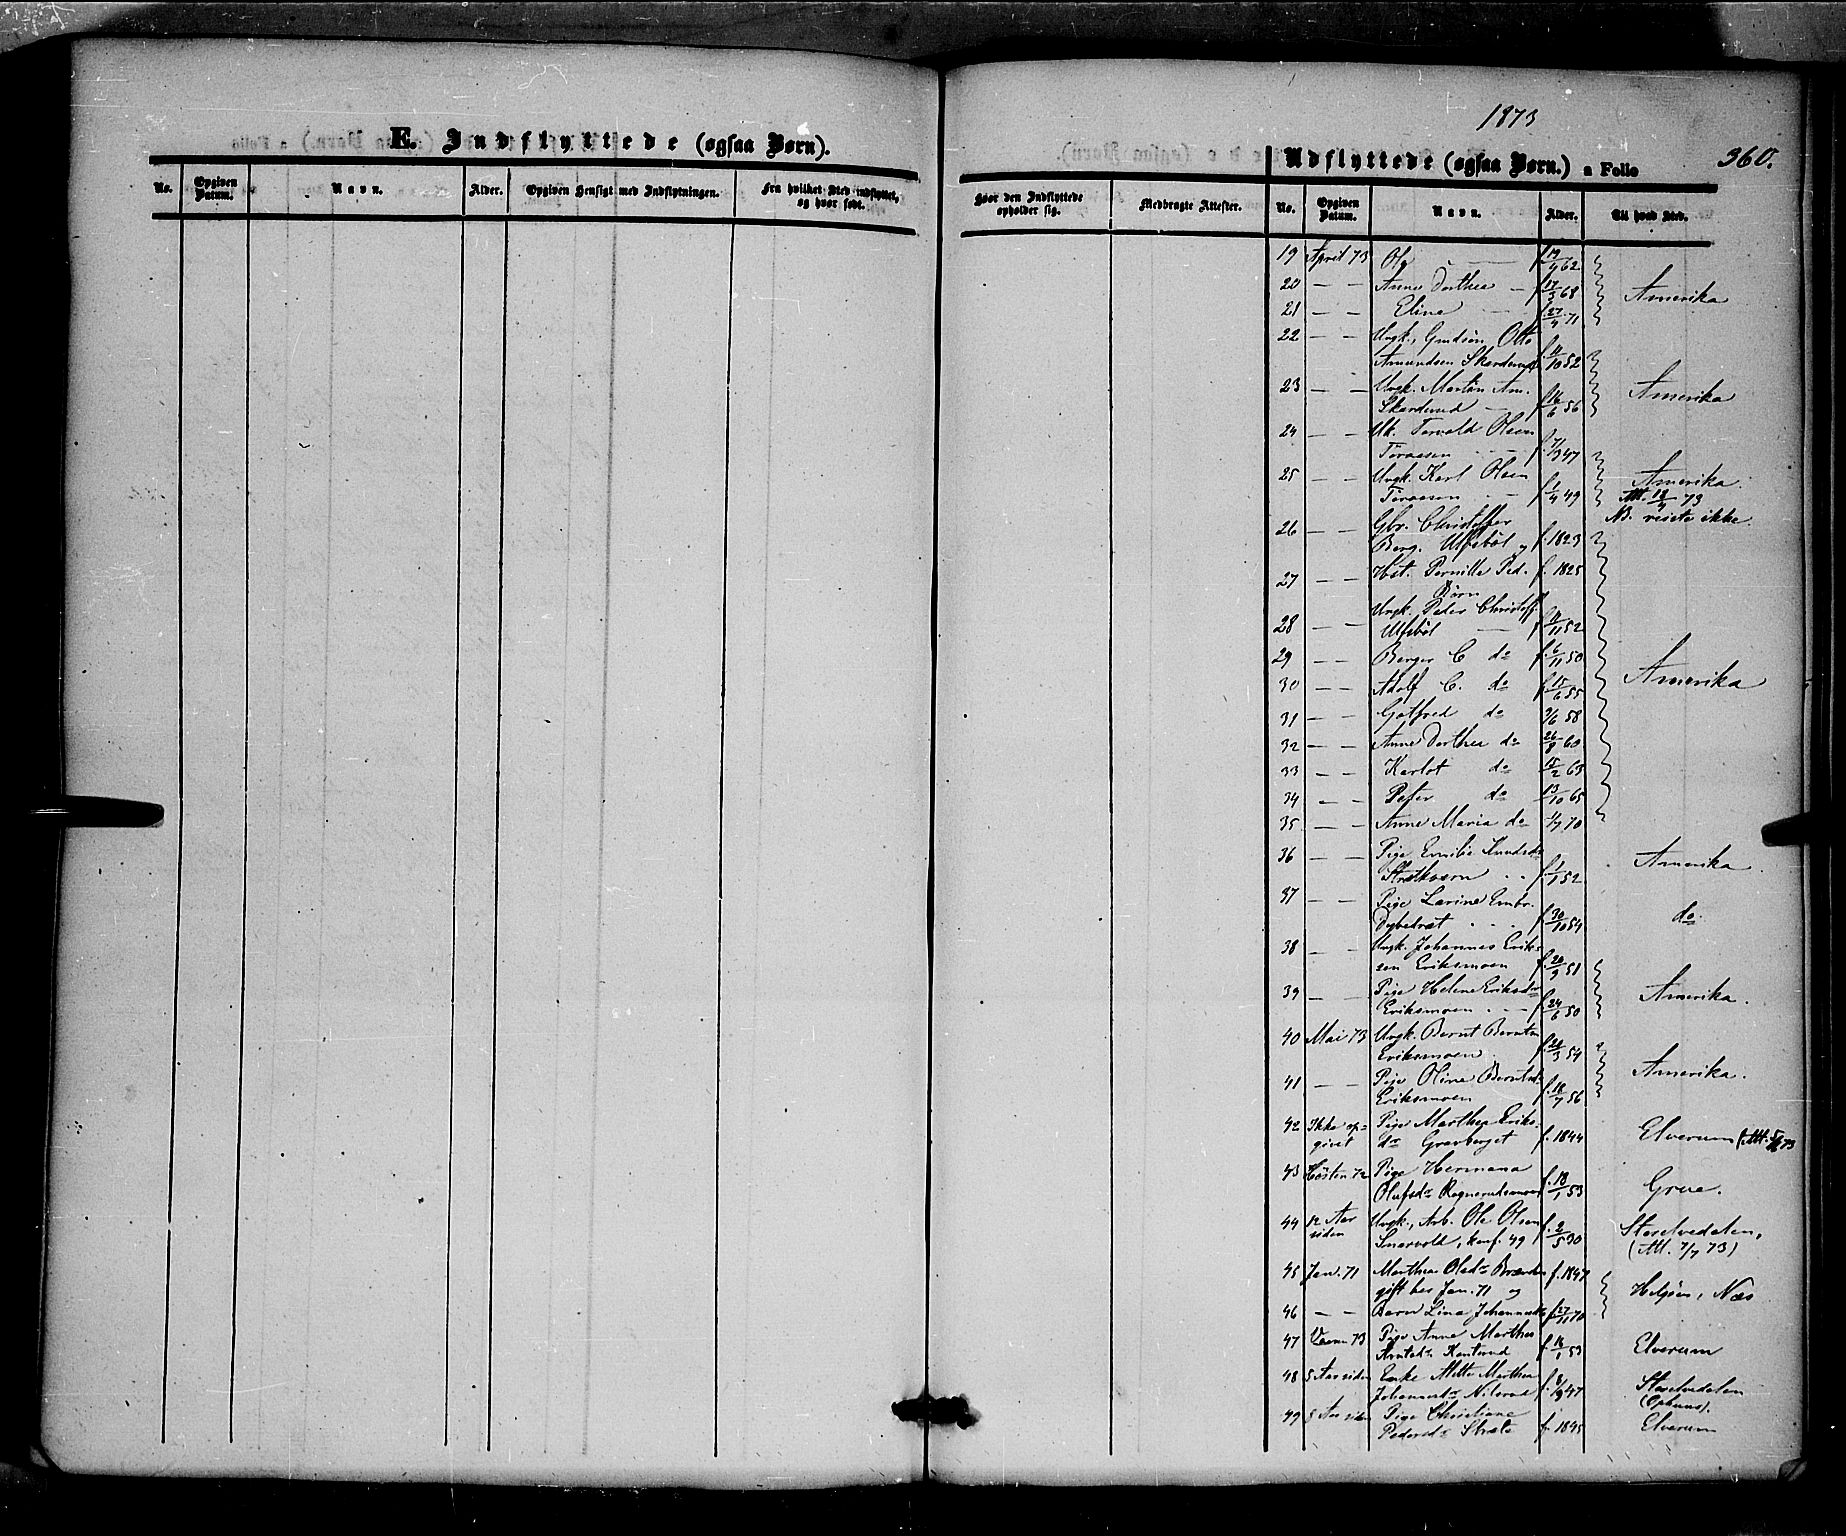 1873
E. Indflyttede (ogsaa Børn).
Udflyttede (ogsaa Børn.) a Folio 360.
No. Opgiven Datum. Navn. Alder. Opgiven Hensigt med Indflytningen. Fra hvilket Sted indflyttet, og hvor født.
Hvor den Indflyttede opholder sig. Medbragte Attester. No. Opgiven Datum. Navn. Alder. Til hvad Sted.
19 April 73 Ole f. 19/4 62
20 — — Anne Dorthea — f. 17/3 68 Amerika
21 — — Eline f. 27/4 71
22 — — Ungk., Otto
Amundsen f. 11/10 52
23 — — Ungk. Martin Am. Amerika
Skarderud f. 16/6 56
24 — — Uk. Torvald Olsen
f. 7/3 47
25 — — Ungk. Karl Olsen Amerika.
f. 1/4 49 Att. 18/4 73
26 — — Gbr. Christoffer NB. reiste ikke.
Berg. Ulfsbøl og f. 1823
27 — — Hst. Pernille Ped. f. 1825
Børn
28 — — Ungk. Peder Christoff.
Ulfsbøl f. 11/11 52
29 — — Berger C do f. 6/11 50
30 — — Adolf C. do f. 15/6 55 Amerika
31 — — Gotfred do 9/6 58
32 — — Anne Dorthea do 26/8 60
33 — — Karlot do 15/2 63
34 — — Peter do 13/10 65
35 — — Anne Maria do 1/7 70
36 — — Pige Emilie Knudsdr Amerika
f. 1/1 52
37 — — Pige Larine Embr. do
Dybedræt f. 30/10 54
38 — — Ungk. Johannes Erik-
sen Eriksmoen f. 20/9 51
39 — — Pige Helene Eriksdr Amerika.
Eriksmoen f. 24/6 50
40 Mai 73 Ungk. Bernt Berntsn
Eriksmoen f. 28/3 54 Amerika.
41 — — Pige Oline Berntsd.
Eriksmoen f. 18/7 56
42 Ikke op- Pige Marthea Eriks-
givet dr Gravberget f. 1844 Elverum
43 Høsten 72 Pige Hermana
Olufsdr f. 18/1 53 Grue.
44 12 Aar Ungk., Arb. Ole Olsen Storelvedalen,
siden konf. 49 f. 2/5 30 (Att. 7/7 73)
45 Jan. 71 Marthea Olsdr f. 1847
gift her Jan. 71 og Helgøen, Næs
46 — — Barn Lina Johannesdr f. 27/11 70
47 73 Pige Anne Marthea
f. 16/1 53 Elverum
48 5 Aar siden Enke Mette Marthea
Johannesdr f. 8/9 47 Storelvedalen
49 5 Aar siden Pige Christiane
Pedersdr Stræte f. 1845 Elverum